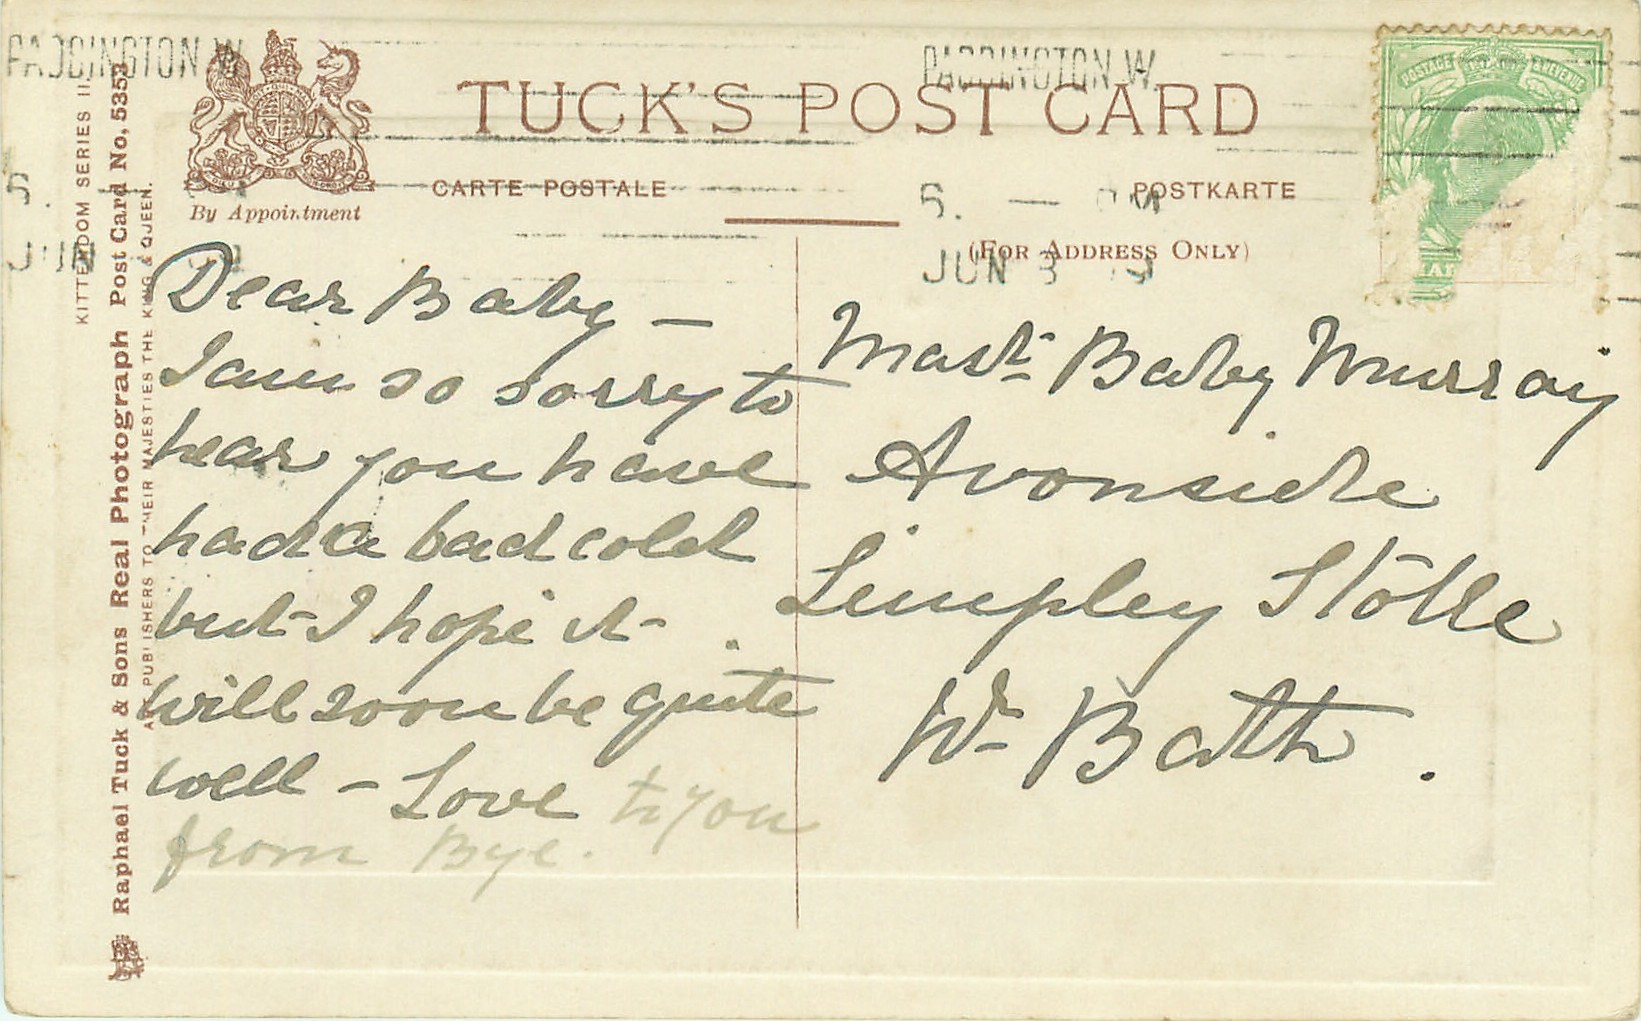 PADDINGTON W
PADDINGTON W.
TUCK'S POST CARD
CARTE POSTALE
POSTKARTE
By Appointment
(FOR ADDRESS ONLY)
5. — PM
JUN 3
JUN
POSTAGE & REVENUE
KITTENDOM SERIES II.
Raphael Tuck & Sons Real Photograph Post Card No. 5353
ART PUBLISHERS TO THEIR MAJESTIES THE KING & QUEEN.
Dear Baby –
I am so sorry to
hear you have
had a bad cold
but I hope it
will soon be quite
well – Love to you
from Bye.
Mastr Baby Murray
Avonside
Limpley Stoke
Nr Bath.